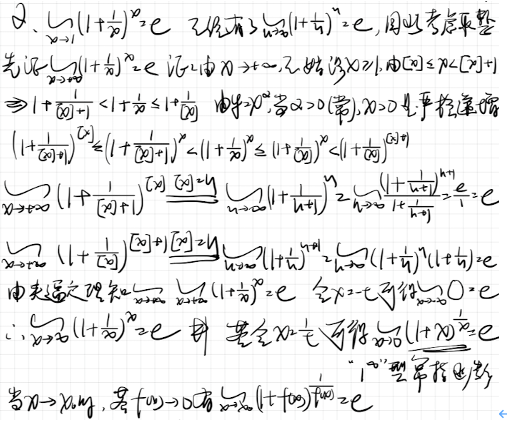 2. lim_{x→1}(1+1/x)^x=e 已经有了lim_{n→∞}(1+1/n)^n=e, 因此考虑取整
先证lim_{x→+∞}(1+1/x)^x=e 证:由x→+∞,不妨设x≥1,由[x]≤x<[x]+1
⇒1+1/([x]+1)<1+1/x≤1+1/[x] 由y=x^α,当α>0(常),x>0是严格递增
(1+1/([x]+1))^[x]≤(1+1/([x]+1))^x<(1+1/x)^x≤(1+1/[x])^x<(1+1/[x])^{[x]+1}
lim_{x→+∞}(1+1/([x]+1))^[x] [x]=n lim_{n→∞}(1+1/(n+1))^n=lim_{n→∞}(1+1/(n+1))^{n+1}/(1+1/(n+1))=e/1=e
lim_{x→+∞}(1+1/[x])^{[x]+1} [x]=n lim_{n→∞}(1+1/n)^{n+1}=lim_{n→∞}(1+1/n)^n(1+1/n)=e
由夹逼定理知lim_{x→+∞}(1+1/x)^x=e 令x=-t可得lim_{x→-∞}()=e
∴lim_{x→∞}(1+1/x)^x=e 若令x=1/t,可得lim_{x→0}(1+x)^{1/x}=e
"1^∞"型幂指函数
当x→x₀时,若f(x)→0有lim_{x→x₀}(1+f(x))^{1/f(x)}=e